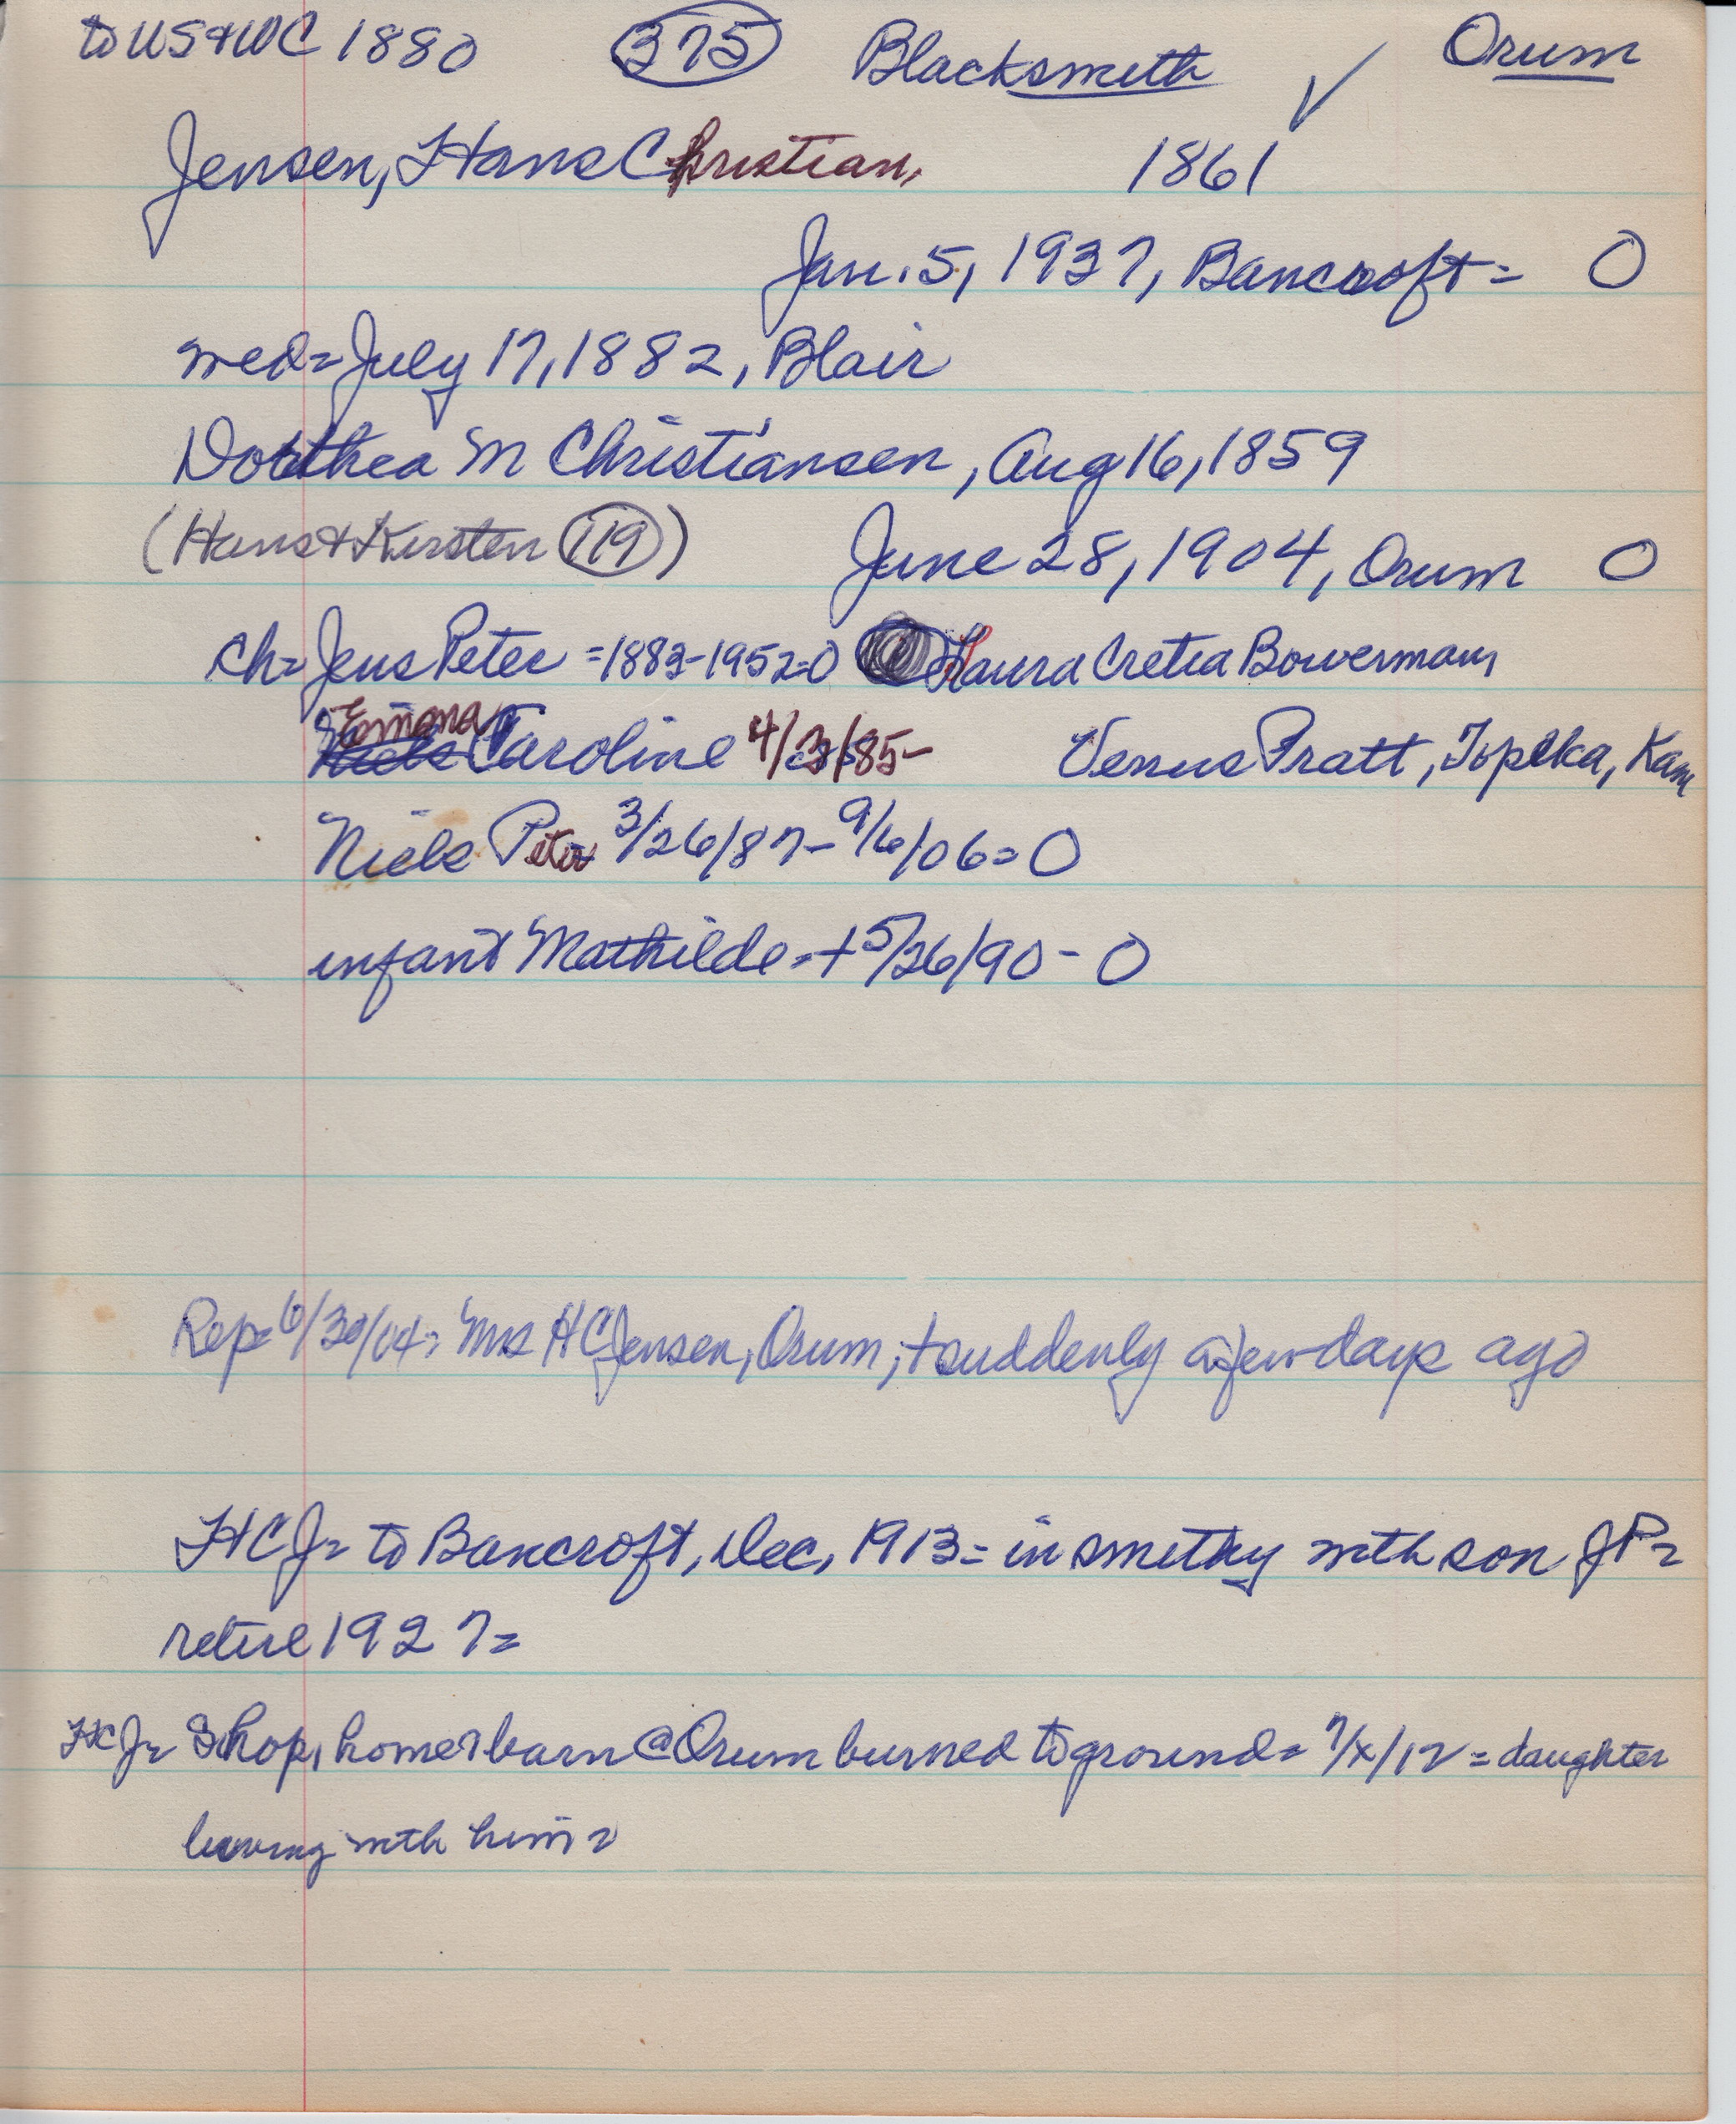 to US & WC 1880 375 Blacksmith ✓ Orum
Jensen, Hans Christian, 1861
Jan. 5, 1937, Bancroft = O
wed = July 17, 1882, Blair
Dorthea M Christiansen, Aug 16, 1859
(Hans & Kirsten 119) June 28, 1904, Orum O
ch = Jens Peter = 1883-1952=O Laura Cretia Bowerman
Caroline 4/3/85- Venus Pratt, Topeka, Kan
Niels Peter 3/26/87-9/6/06=O
infant Mathilde = + 5/26/90 - O
Rep = 6/30/04 = Mrs HC Jensen, Orum, + suddenly a few days ago
HCJ = to Bancroft, Dec, 1913 = in smithy with son JP =
retire 1927 =
HCJ = shop, home & barn @ Orum burned to ground = 7/x/12 = daughter
living with him =